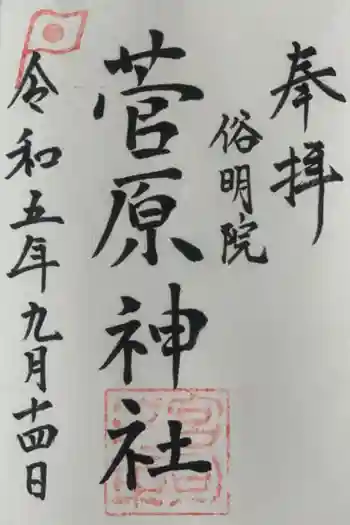 奉拝
俗明院
菅原神社
令和五年九月十四日